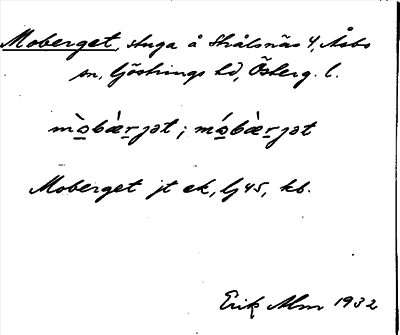 Moberget, stuga å Strålsnäs 4, Åsbo
sn, Göstrings hd, Österg. l.
mo̲bæ̀r̲jət ; mó̲bæ̀r̲jət
Moberget jt ek, lj 45, kb.
Erik Alm 1932